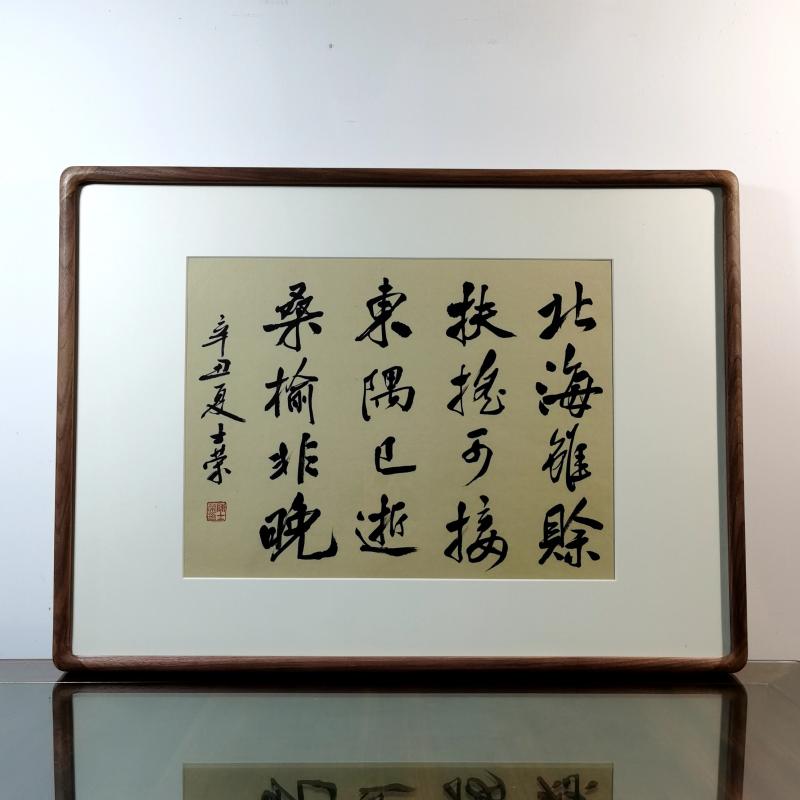 北海雖賒
扶搖可接
東隅已逝
桑榆非晚
辛丑夏士荣